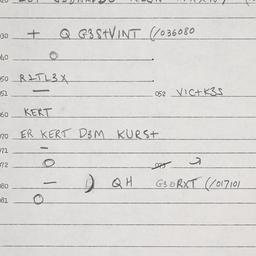 030 + Q G3S+VINT (/036080
040 O
050 R2TL3X
051 — 052 VIC+K3S
060 KERT
070 ER KERT D3M KURS+
071 —
072 O 073
080 — QH G3BRXT (/017101
081 O